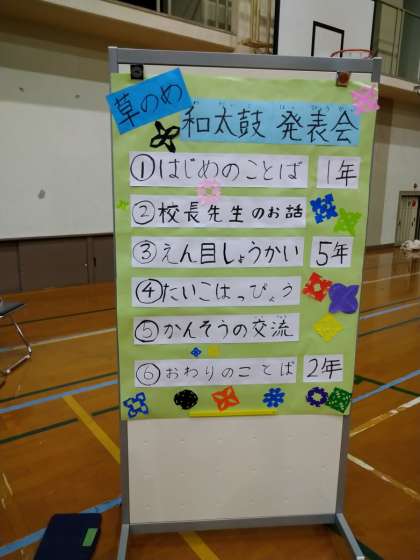 草のめ
和太鼓 発表会
①はじめのことば 1年
②校長先生のお話
③えん目しょうかい 5年
④たいこはっぴょう
⑤かんそうの交流
⑥おわりのことば 2年